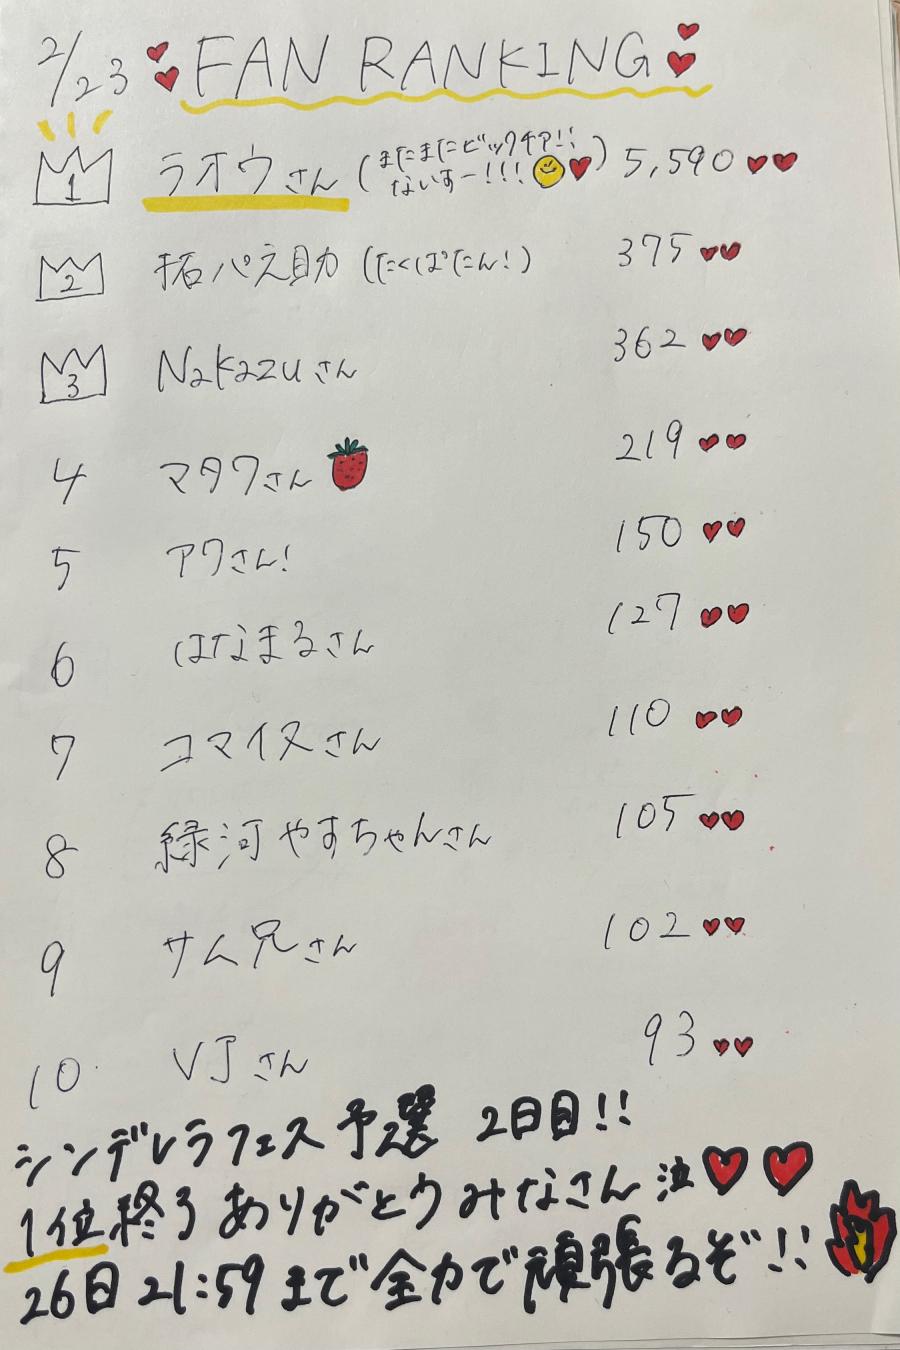 2/23 FAN RANKING
1 ラオウさん (またまたビックチア!! ないすー!!!) 5,590
2 拓パえ助 (たくぱたん!) 375
3 Nakazuさん 362
4 マタワさん 219
5 アワさん! 150
6 はなまるさん 127
7 コマイヌさん 110
8 緑河やすちゃんさん 105
9 サム兄さん 102
10 VJさん 93
シンデレラフェス予選 2日目!!
1位終了ありがとうみなさん泣
26日21:59まで全力で頑張るぞ!!